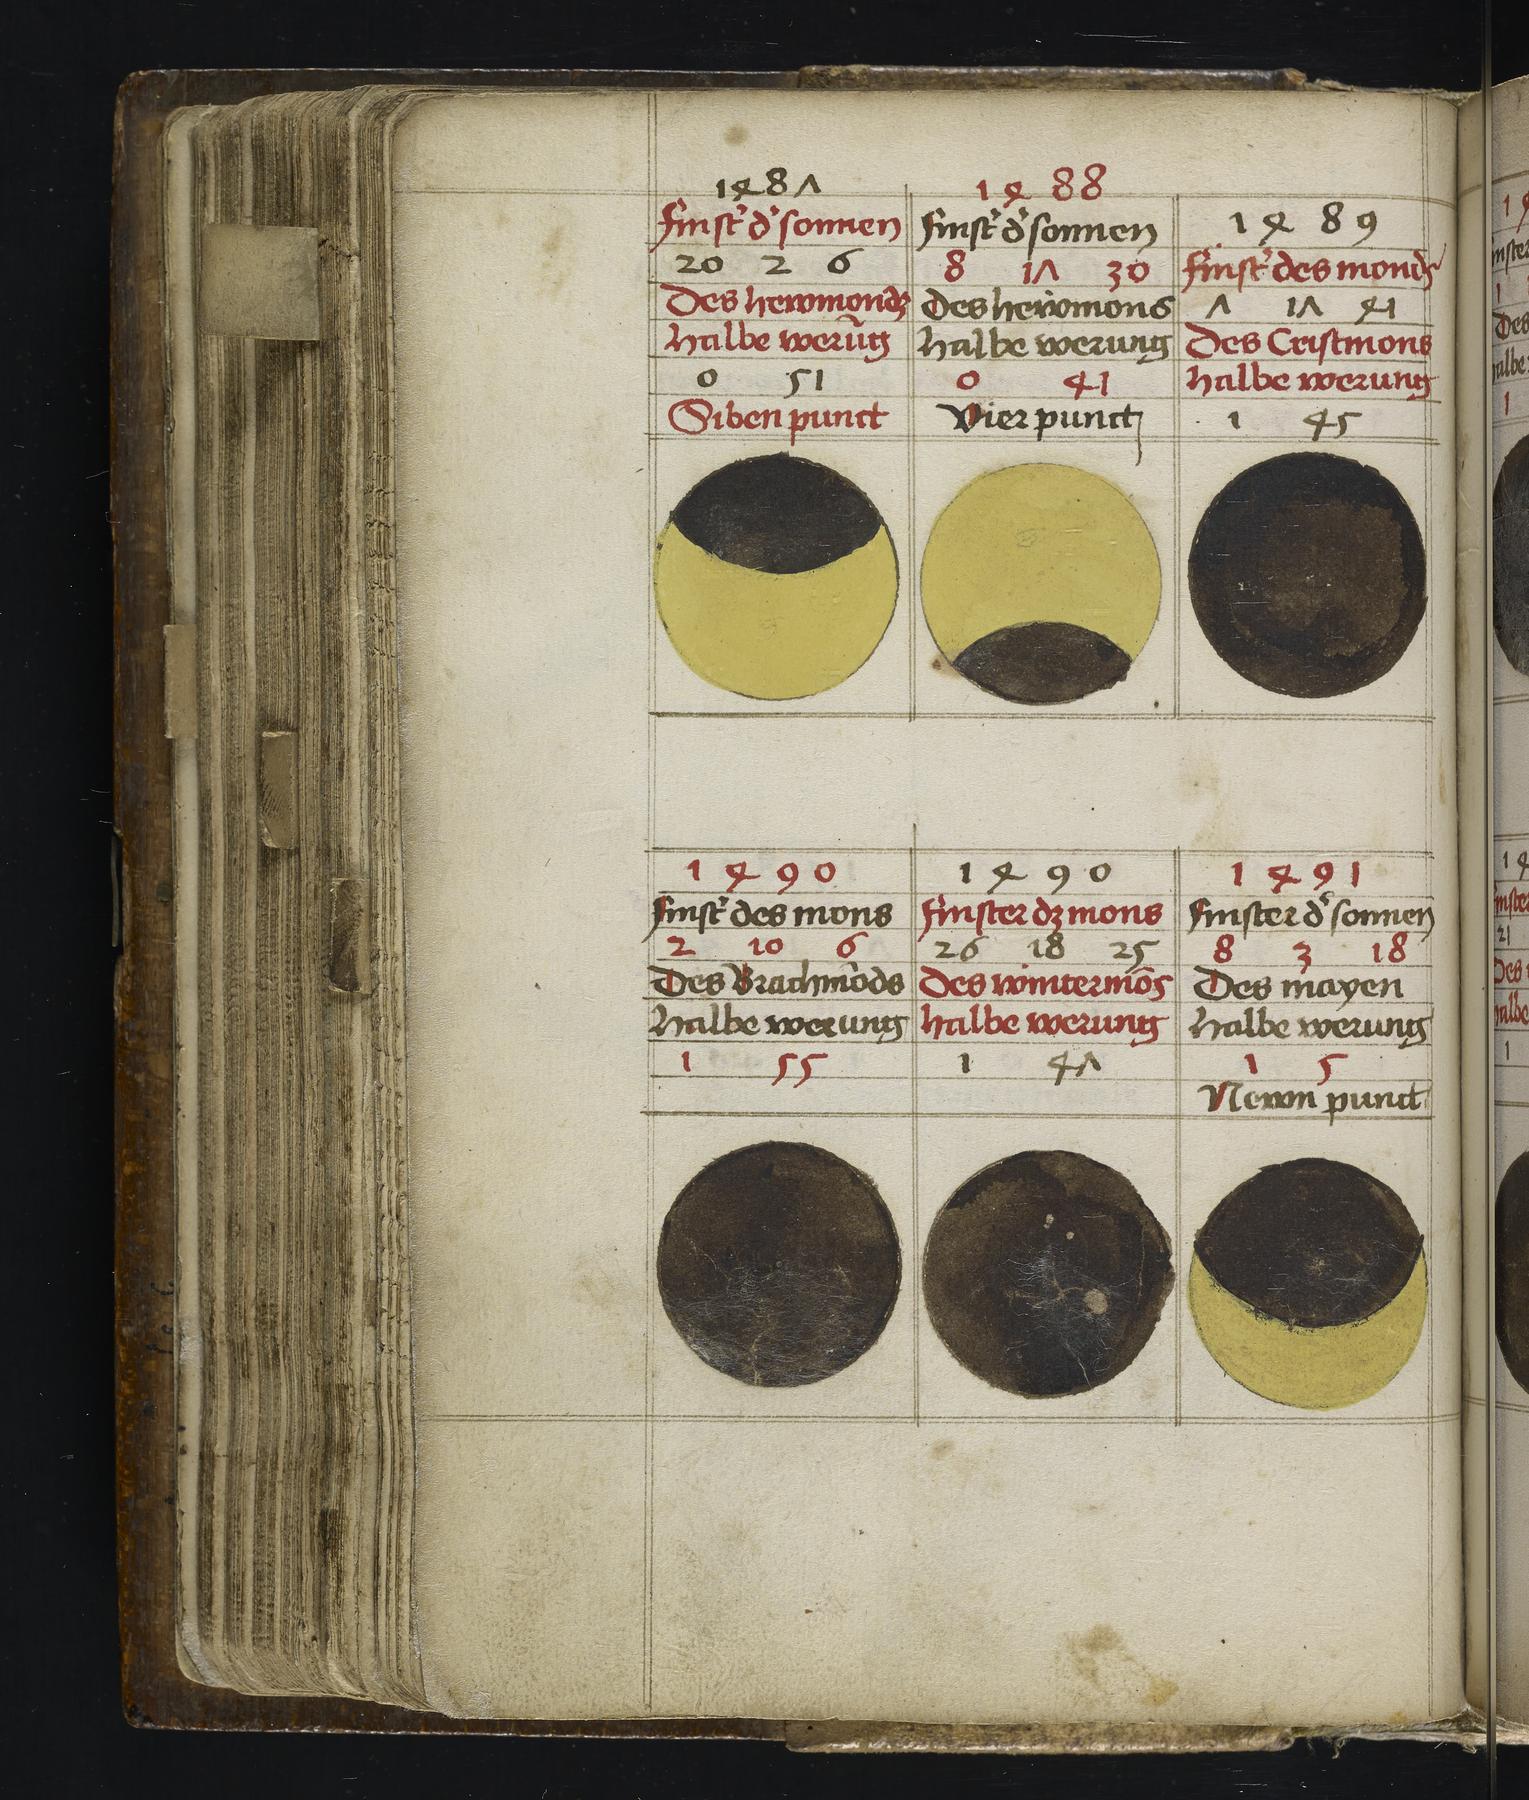 1487
finst' d' sonnen
20 2 6
Des hewmondz
halbe werũg
0 51
Siben punct
1488
finst' d' sonnen
8 17 30
des hewmons
halbe werung
0 41
Vier punct
1489
finst' des mondz
7 17 41
Des Cristmons
halbe werung
1 45
1490
finst' des mons
2 10 6
Des Brachmōds
halbe werung
1 55
1490
finster dz mons
26 18 25
Des wintermōs
halbe werung
1 47
1491
finster d' sonnen
8 3 18
Des mayen
halbe werung
1 5
Newn punct